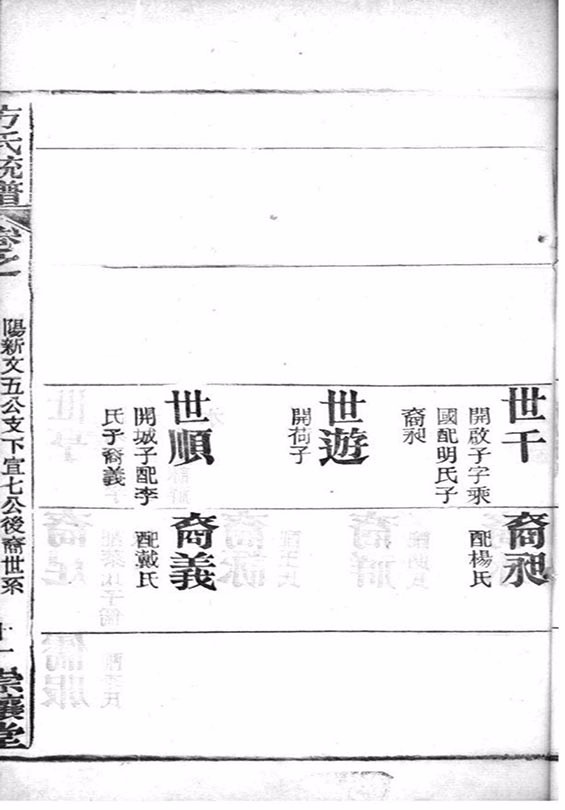 世千
開啟子字乘
國配明氏子
裔昶
世遊
開荷子
世順
開城子配李
氏子裔義
裔昶
配楊氏
裔義
配戴氏
方氏統譜
卷之一
陽新文五公支下宣七公後裔世系
十一
崇讓堂